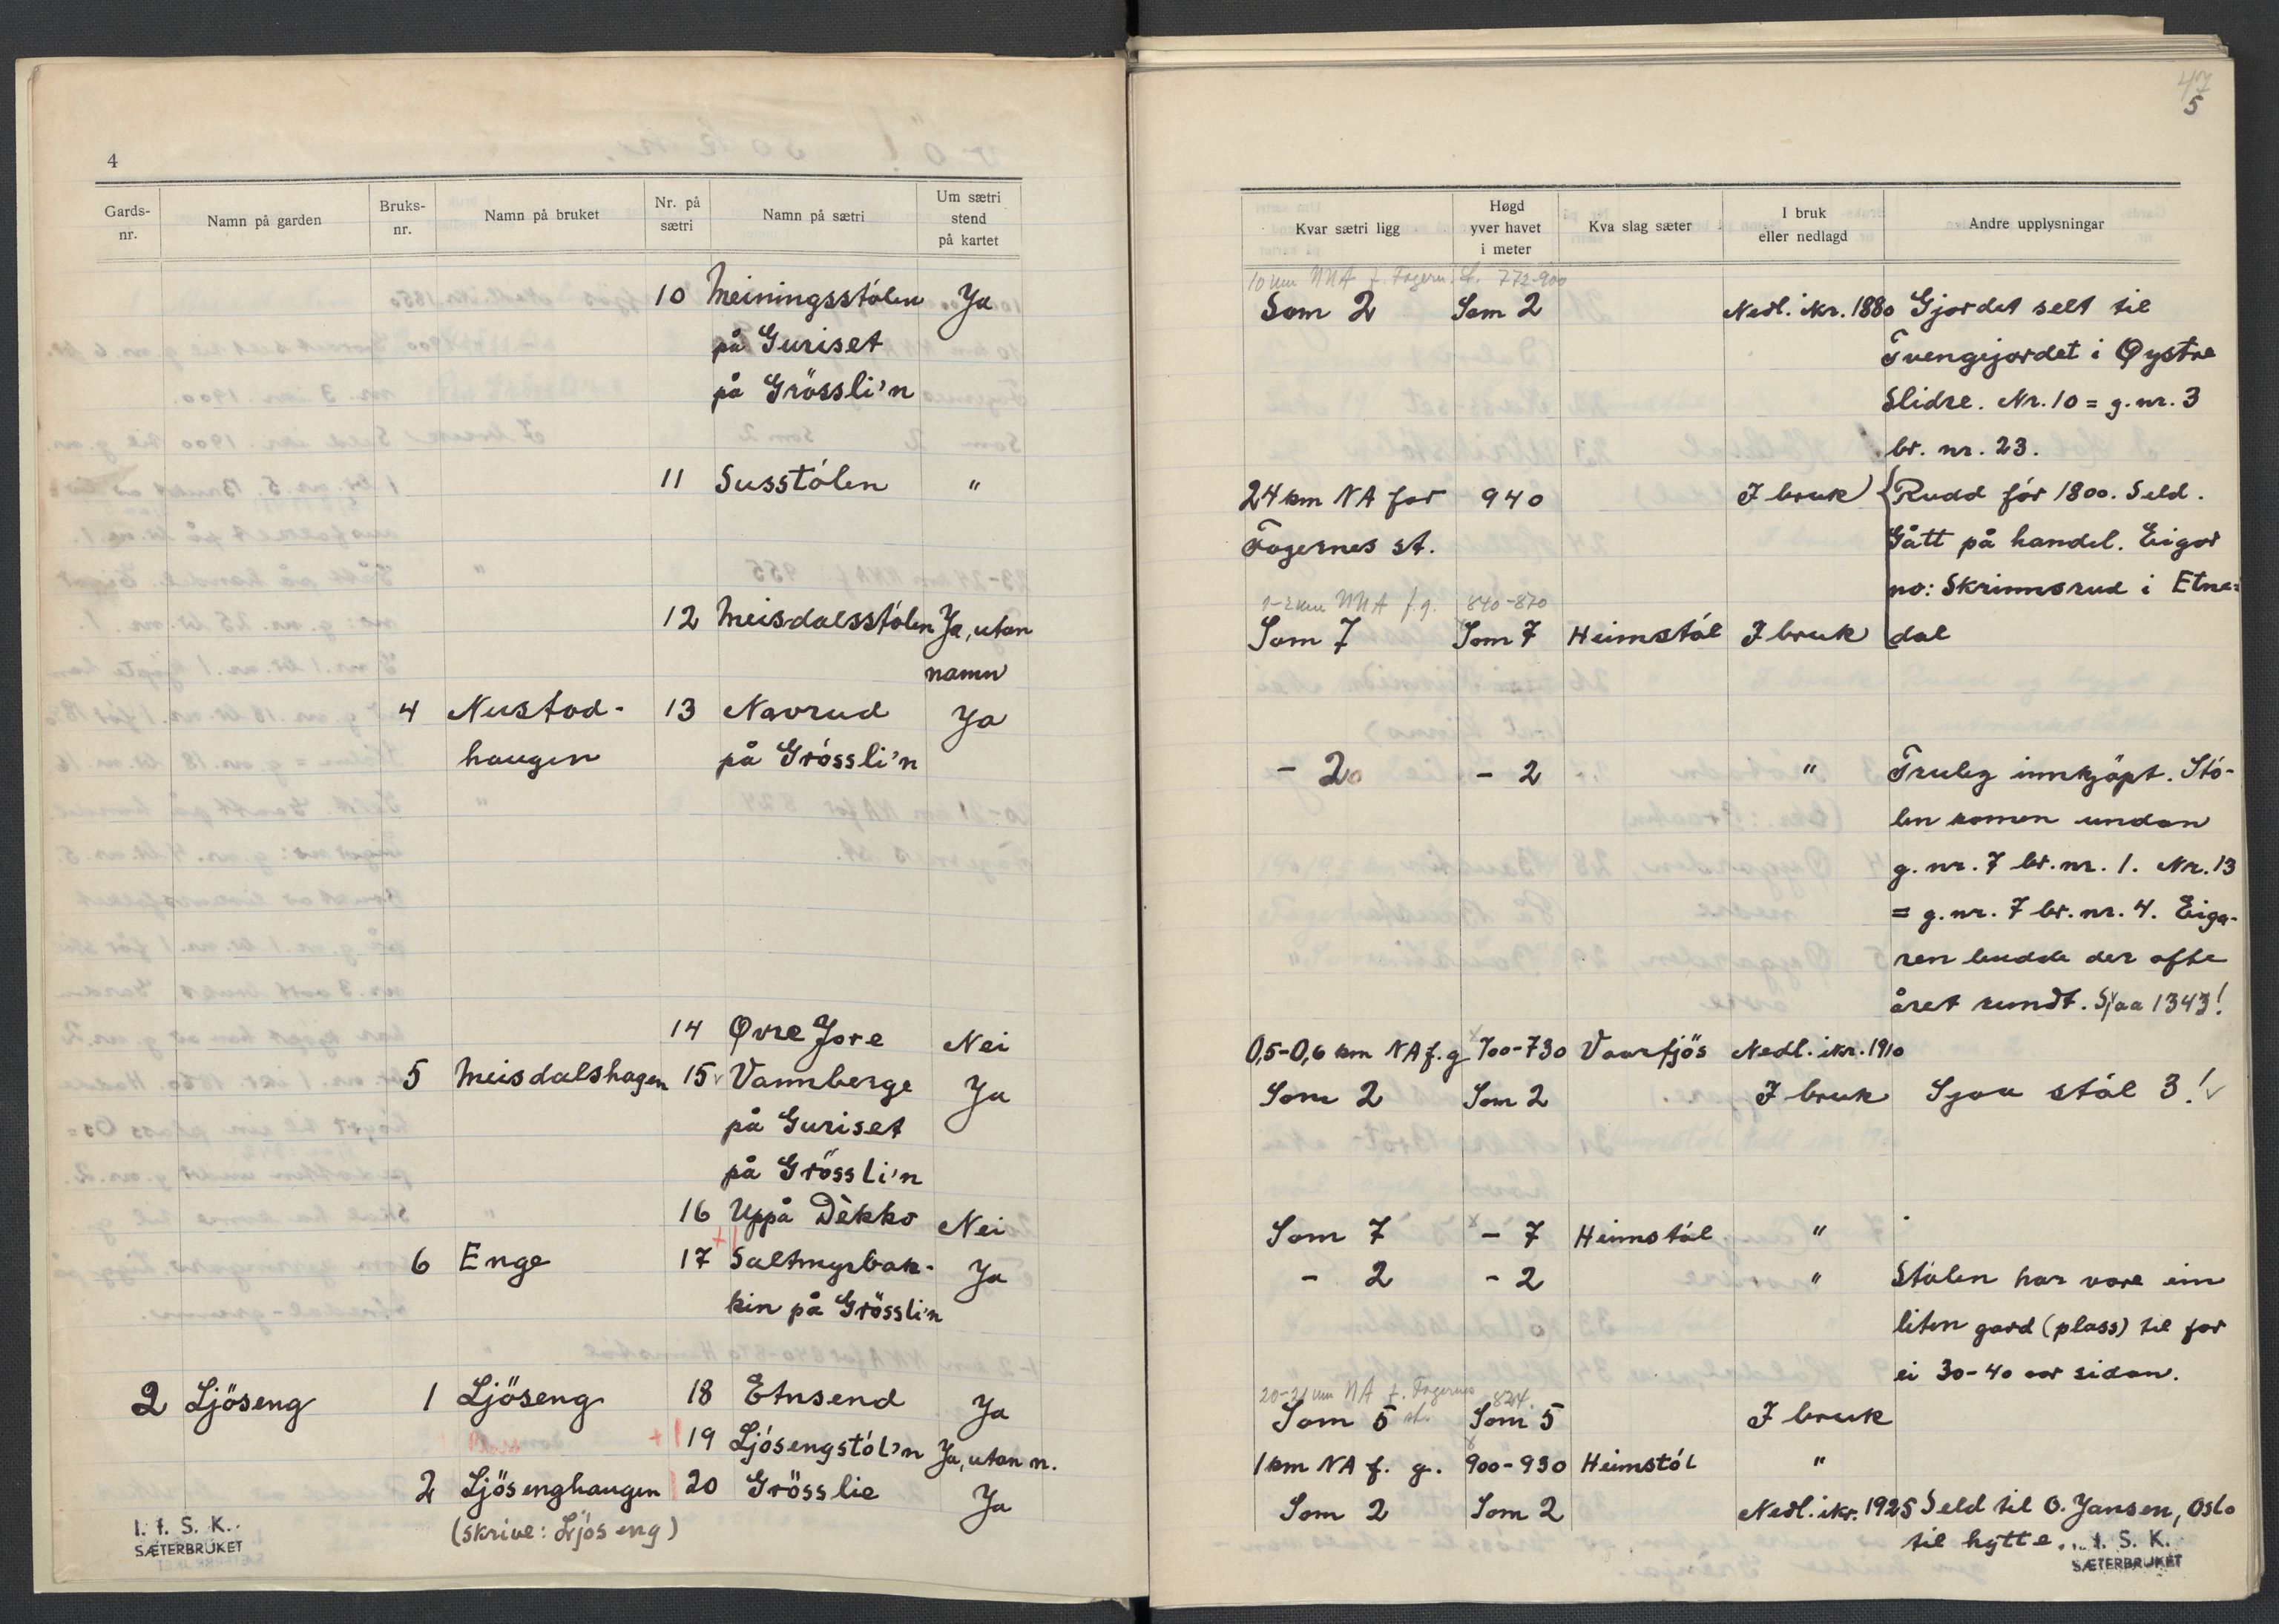 4
Gards-
nr.
Namn på garden
Bruks-
nr.
Namn på bruket
Nr. på
sætri
Namn på sætri
Um sætri
stend
på kartet
10 Meiningsstölen Ja
på Guriset
på Grössli'n
11 Susstölen "
12 Meisdalsstölen Ja, utan
namn
4 Nustad- 13 Navrud Ja
haugen på Grössli'n
14 Øvre Jore Nei
5 Meisdalshagen 15 Vannberge Ja
på Guriset
på Grössli'n
16 Uppå Dèkko Nei
6 Enge 17 Saltmyrbak- Ja
kin på Grössli'n
2 Ljöseng 1 Ljöseng 18 Etnsend Ja
19 Ljösengstöl'n Ja, utan n.
2 Ljösenghaugen 20 Grösslie Ja
(skrive: Ljöseng)
I. f. S. K.
SÆTERBRUKET
47
5
Kvar sætri ligg
Høgd
yver havet
i meter
Kva slag sæter
I bruk
eller nedlagd
Andre upplysningar
10 km NNA f. Fagern. st. 772-900
Som 2 Som 2 Nedl. ikr. 1880 Gjordet selt til
Tvengjordet i Øystre
Slidre. Nr. 10 = g. nr. 3
br. nr. 23.
24 km NA for 940 I bruk Rudd för 1800. Seld.
Fagernes st. Gått på handel. Eigar
no: Skrinnsrud i Etne=
1-2 km NNA f. g. 840-870
Som 7 Som 7 Heimstöl I bruk dal
- 2 - 2 " Truleg innkjöpt. Stö-
len komen undan
g. nr. 7 br. nr. 1. Nr. 13
= g. nr. 7 br. nr. 4. Eiga-
ren budde der ofte
året rundt. Sjaa 1343!
0,5-0,6 km NA f. g 700-730 Vaarfjös Nedl. ikr. 1910
Som 2 Som 2 I bruk Sjaa stöl 3!
Som 7 - 7 Heimstöl "
- 2 - 2 " Stölen har vore ein
liten gard (plass) til for
ei 30-40 aar sidan.
20-21 km NA f. Fagernes st. 824.
Som 5 Som 5 I bruk
1 km NA f. g. 900-930 Heimstöl "
Som 2 Som 2 Nedl. ikr. 1925 Seld til O. Jansen, Oslo
til hytte.
I. f. S. K.
SÆTERBRUKET